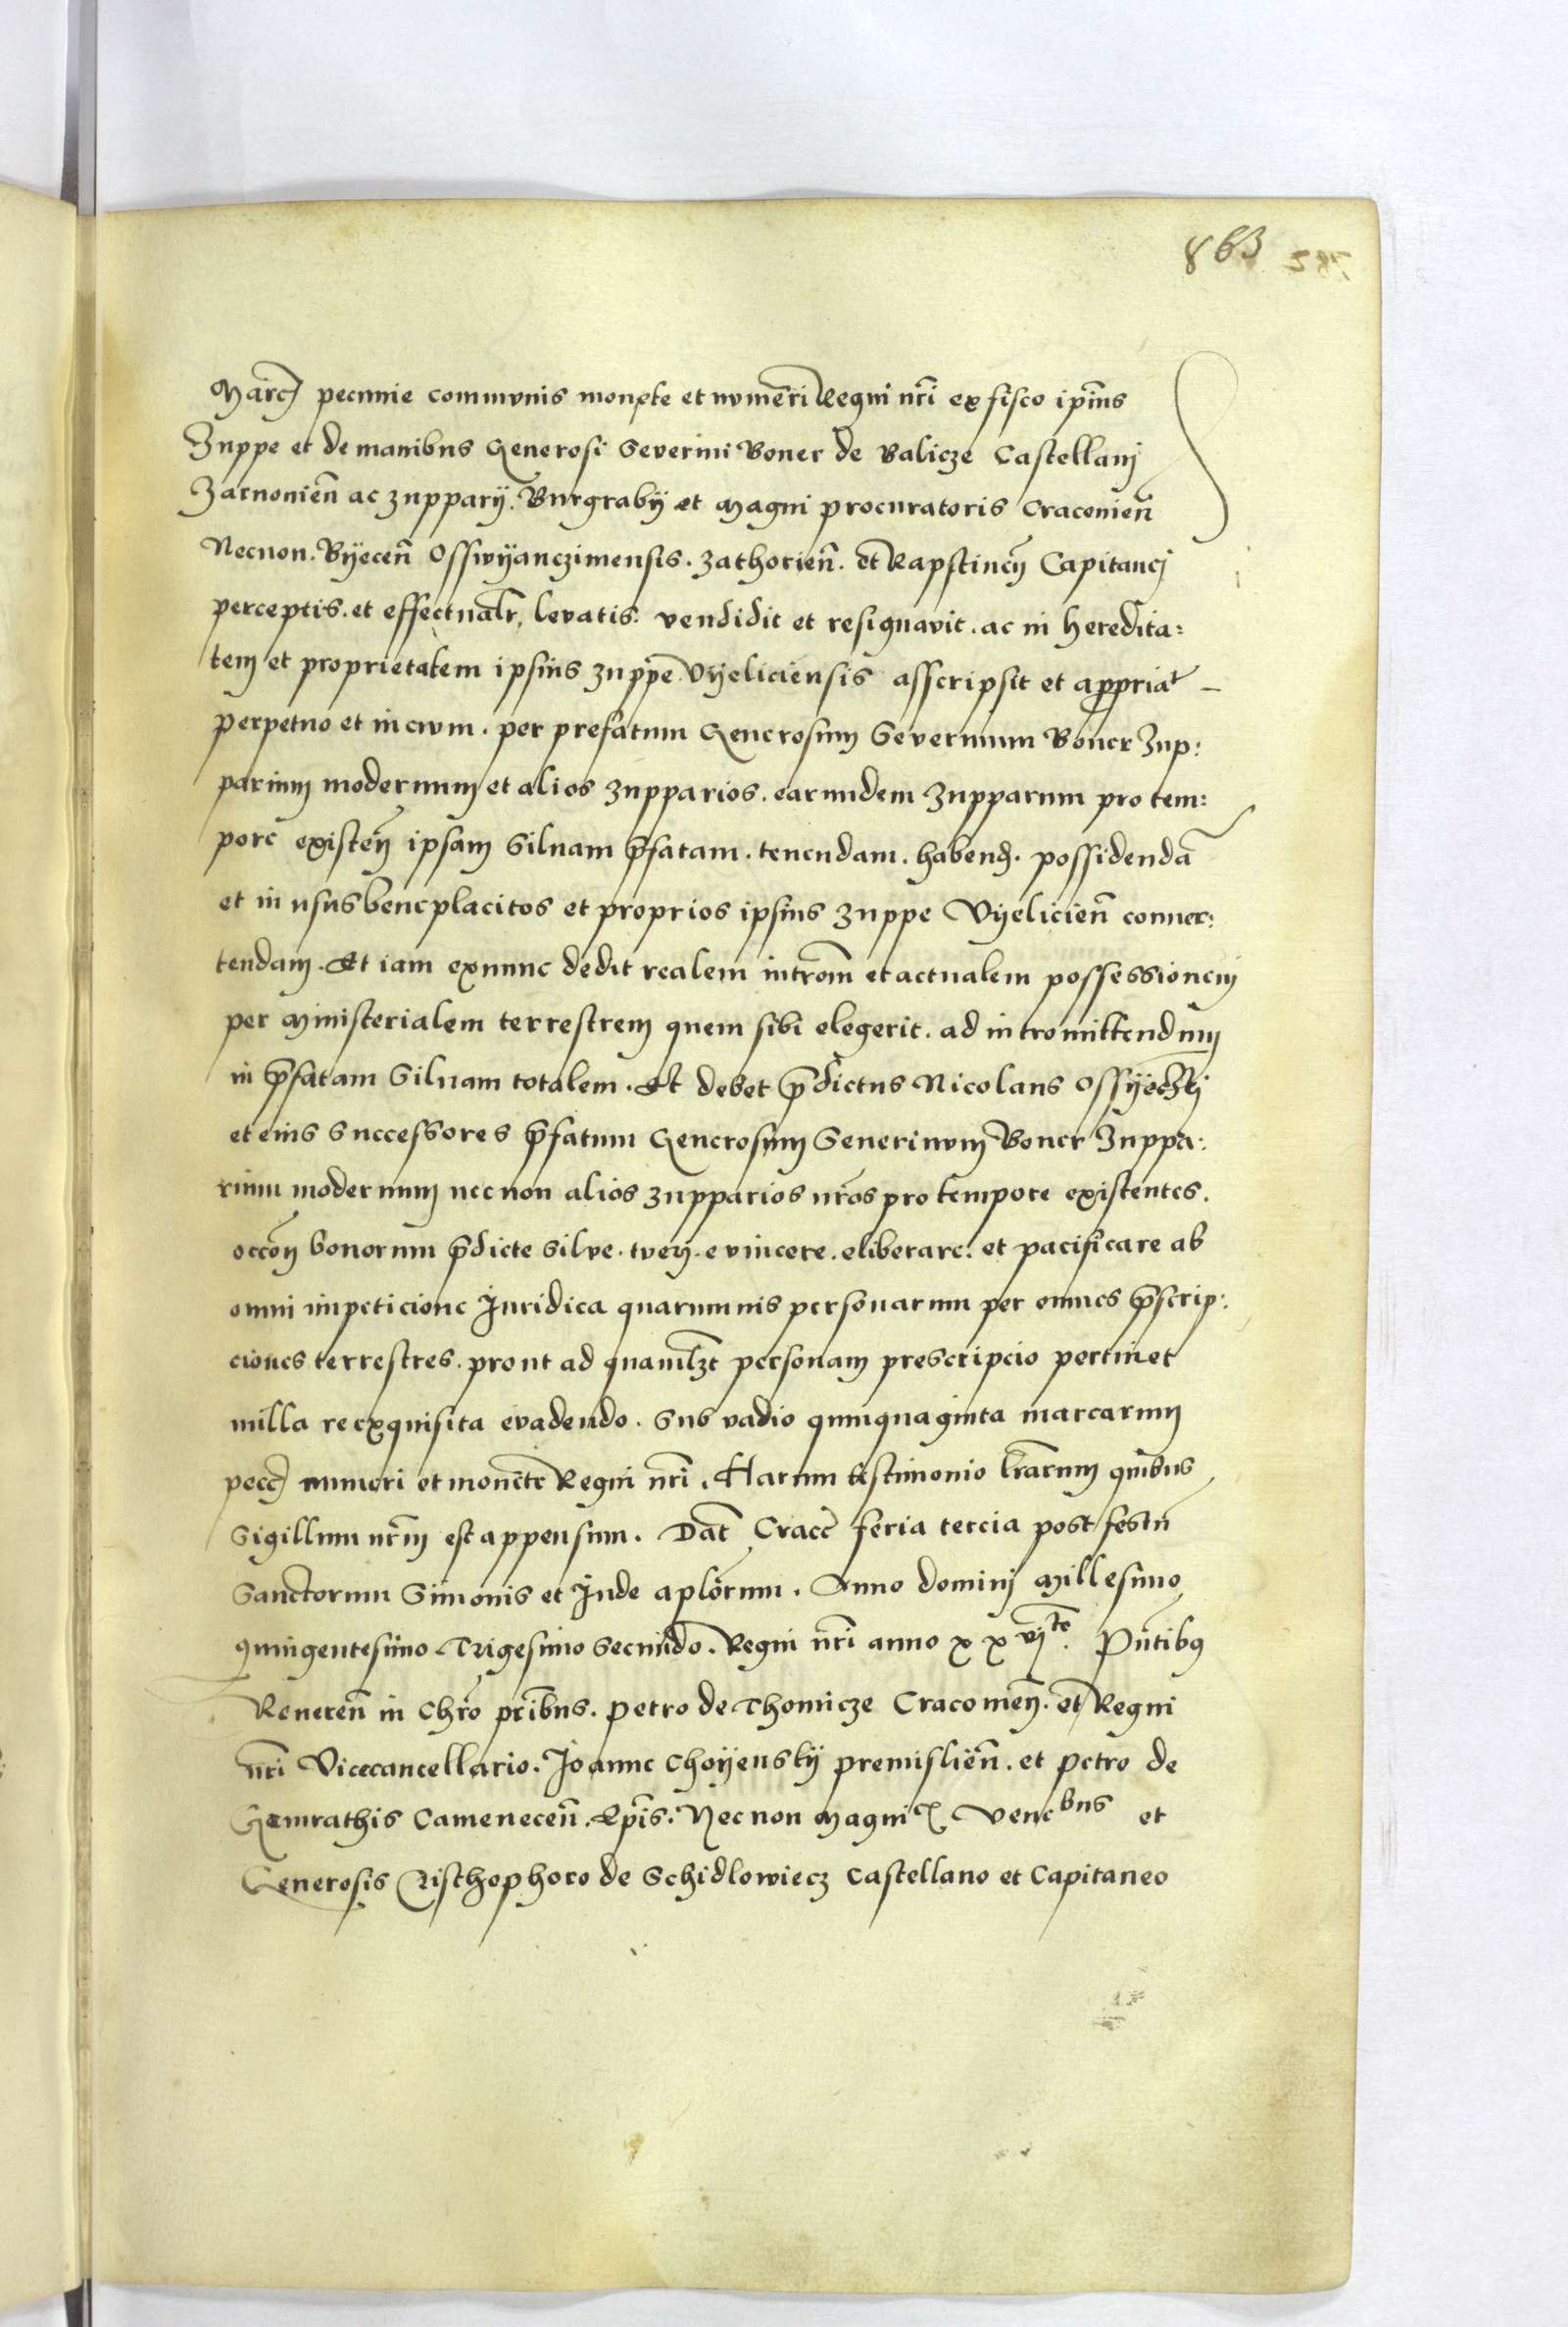 863 585
Marcȝ pecunie communis monete et numeri Regni nr̃i ex fisco ip̃ius
Zuppe et de manibus Generosi Severini Boner de Balicze Castellanj
Zarnovien̄ ac zupparij. Burgrabij et Magni procuratoris Cracovien̄
Necnon. Byecen̄ Osswyanczimensis. Zathorien̄. et Rapstinen̄ Capitanej
perceptis. et effectualr̃. levatis. vendidit et resignavit. ac in heredita:
tem et proprietatem ipsius zuppe Vyeliciensis asscripsit et appropriat –
perpetuo et in evum. per prefatum Generosum Severinum Boner Zup:
parium modernum et alios zupparios. earundem zupparum pro tem:
pore existen̄ ipsam Siluam p̄fatam. tenendam. habend. possidendā
et in usus beneplacitos et proprios ipsius zuppe Vyelicien̄ conuer:
tendam. Et iam exnunc dedit realem introm̄ et actualem possessionem
per Ministerialem terrestrem quem sibi elegerit. ad intromittendum
in p̄fatam Siluam totalem. Et debet p̄dictus Nicolaus Ossyeczkj
et eius successores p̄fatum Generosum Seuerinum Boner Zuppa:
rium modernum necnon alios zupparios nr̃os pro tempore existentes.
occōn bonorum p̄dicte silve. tuerj. evincere. eliberare. et pacificare ab
omni impeticione Juridica quarumuis personarum per omnes p̄scrip:
ciones terrestres. prout ad quamlȝt personam prescripcio pertinet
nulla re exquisita evadendo. Sub vadio quinquaginta marcarum
peccȝ numeri et monete Regni nr̃i. Harum testimonio lr̃arum quibus
Sigillum nr̃m est appensum. Dat̄ Cracc̄ feria tercia post festū
Sanctorum Simonis et Jude aplorum. Anno dominj Millesimo
quingentesimo Trigesimo Secundo. Regni nr̃i anno xxvjᵗᵒ. Pn̄tibꝰ
Reueren̄ in chr̃o pr̃ibus. Petro de Thomicze Cracovien̄. et Regni
nr̃i Vicecancellario. Joanne Choyensky premislien̄. et Petro de
Gamrathis Camenecen̄. Ep̃is. Necnon Magnicȝ. Venebus et
Generosis Cristhophoro de Schidlowiecz Castellano et Capitaneo